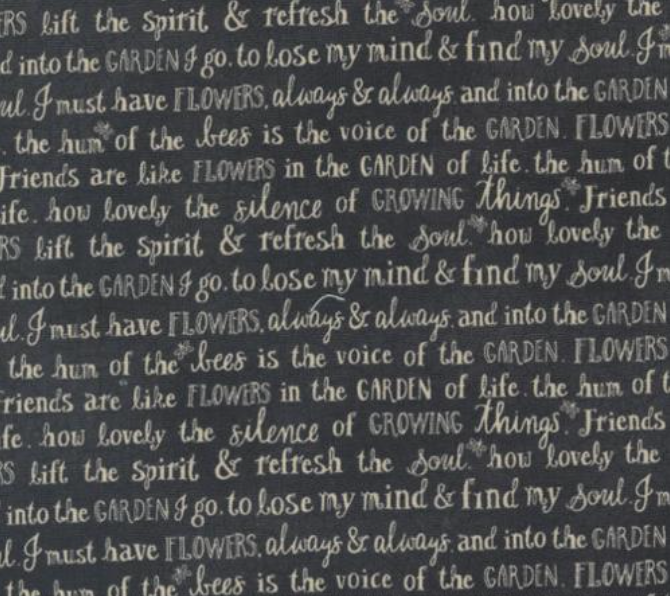 ERS lift the spirit & refresh the soul. how lovely the
d into the GARDEN I go. to lose my mind & find my soul. I
ul. I must have FLOWERS, always & always. and into the GARDEN
. the hum of the bees is the voice of the GARDEN. FLOWERS
Friends are like FLOWERS in the GARDEN of life. the hum of t
ife. how lovely the silence of GROWING things. Friends
RS lift the spirit & refresh the soul. how lovely the
into the GARDEN I go. to lose my mind & find my soul. I
ul. I must have FLOWERS, always & always. and into the GARDEN
the hum of the bees is the voice of the GARDEN. FLOWERS
riends are like FLOWERS in the GARDEN of life. the hum of t
fe. how lovely the silence of GROWING things. Friends
RS lift the spirit & refresh the soul. how lovely the
into the GARDEN I go. to lose my mind & find my soul. I
l. I must have FLOWERS, always & always. and into the GARDEN
the hum of the bees is the voice of the GARDEN. FLOWERS